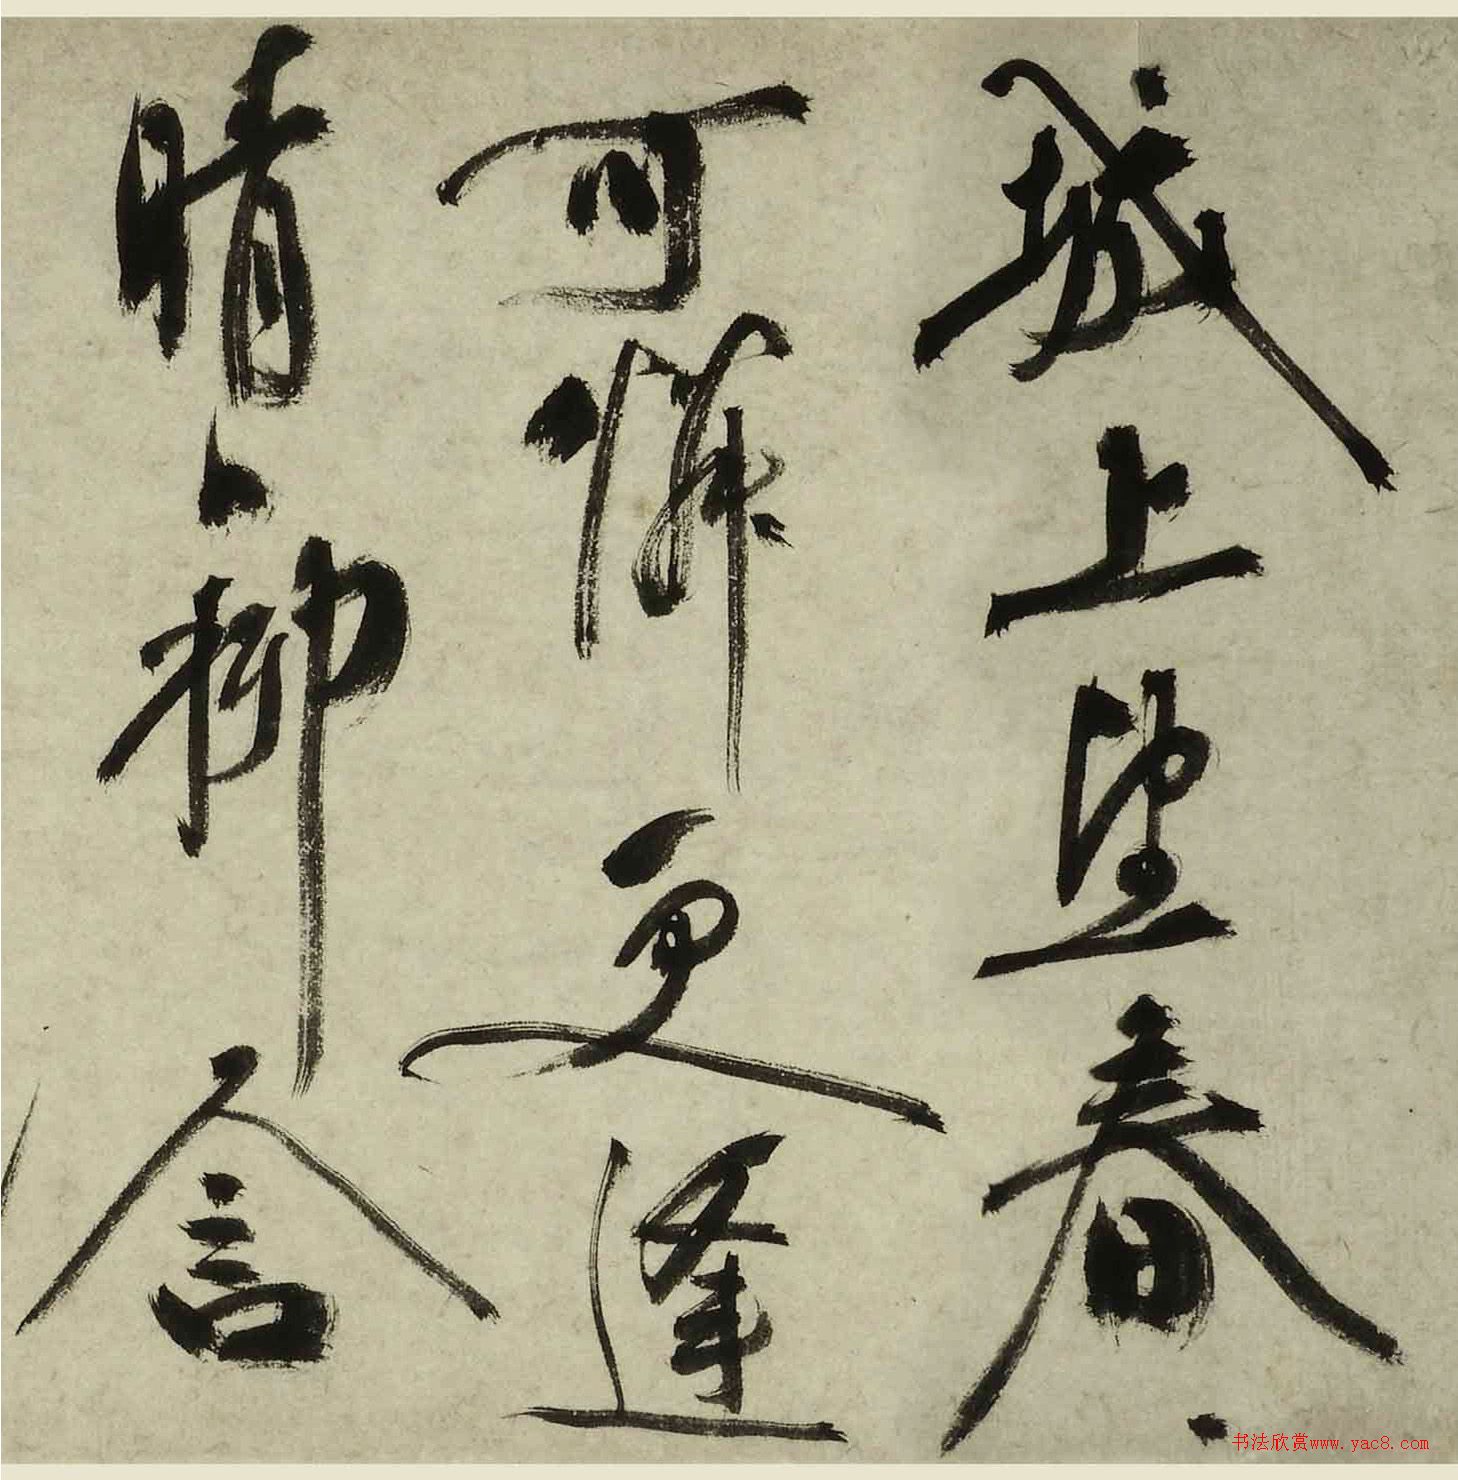 城上望春々
可憐更逢
晴々柳含
书法欣赏www.yac8.com